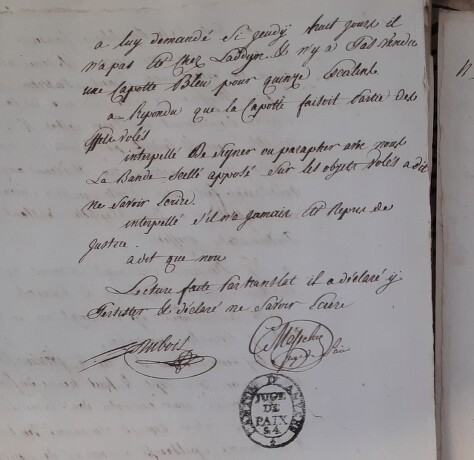 a luy demandé Si jeudy huit jours il
n'a pas Eté chez Laddyn Il n'y a Pas Vendre
une Capotte Bleu pour quinze Escalins
a Repondu que la Capotte faisoit Partie des
Effets volés
interpellé De Signer ou parapher avec nous
La Bande Scellé apposé Sur les objets Volés a dit
ne Savoir Ecrire.
interpellé s'il n'a jamais Eté Repris de
Justice.
a dit que non
Lecture faite Par translat il a déclaré y
Persister Et déclaré ne Savoir Ecrire
Dubois
juge de Paix
CANTON D'
JUGE
DE
PAIX